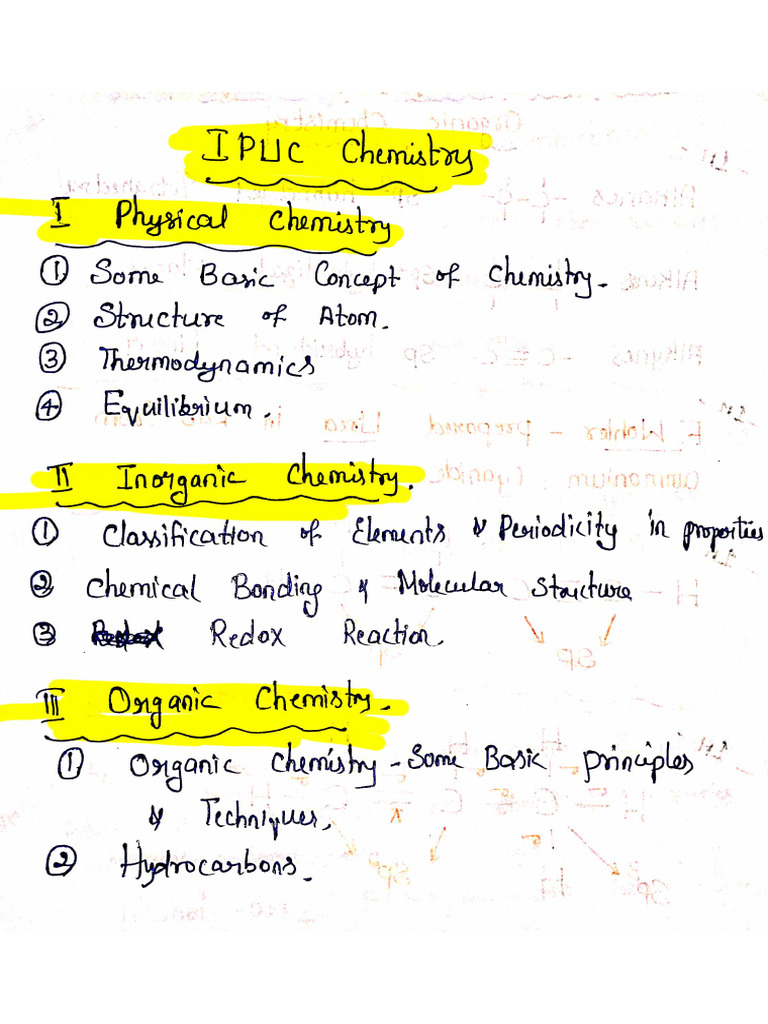 I PUC Chemistry
I Physical Chemistry
① Some Basic Concept of Chemistry.
② Structure of Atom.
③ Thermodynamics
④ Equilibrium.
II Inorganic Chemistry.
① Classification of Elements & Periodicity in properties
② Chemical Bonding & Molecular Structure
③ Redox Reaction.
III Organic Chemistry.
① Organic Chemistry - Some Basic principles
& Techniques.
② Hydrocarbons.